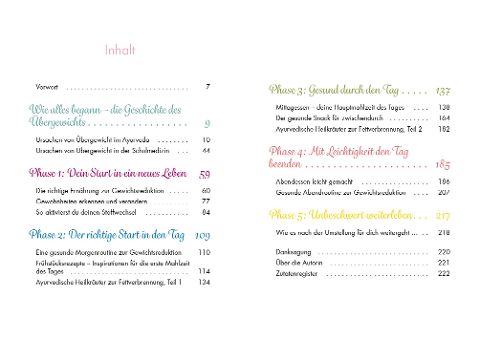 Inhalt
Vorwort . . . . . . . . . . . . . . . . . . . . . . . . . . . . . 7
Wie alles begann – die Geschichte des
Übergewichts . . . . . . . . . . . . . . . . . . 9
Ursachen von Übergewicht im Ayurveda . . . . . . . . 10
Ursachen von Übergewicht in der Schulmedizin . . . 44
Phase 1: Dein Start in ein neues Leben 59
Die richtige Ernährung zur Gewichtsreduktion . . . . 60
Gewohnheiten erkennen und verändern . . . . . . . . 77
So aktivierst du deinen Stoffwechsel . . . . . . . . . . . 84
Phase 2: Der richtige Start in den Tag 109
Eine gesunde Morgenroutine zur Gewichtsreduktion 110
Frühstücksrezepte – Inspirationen für die erste Mahlzeit
des Tages . . . . . . . . . . . . . . . . . . . . . . . . . . . . 114
Ayurvedische Heilkräuter zur Fettverbrennung, Teil 1 . . 134
Phase 3: Gesund durch den Tag . . . . . 137
Mittagessen – deine Hauptmahlzeit des Tages . . . . 138
Der gesunde Snack für zwischendurch . . . . . . . . . 164
Ayurvedische Heilkräuter zur Fettverbrennung, Teil 2 . . 182
Phase 4: Mit Leichtigkeit den Tag
beenden . . . . . . . . . . . . . . . . . . . . . 185
Abendessen leicht gemacht . . . . . . . . . . . . . . . . 186
Gesunde Abendroutine zur Gewichtsreduktion . . . . 207
Phase 5: Unbeschwert weiterleben . . . 217
Wie es nach der Umstellung für dich weitergeht . . . 218
Danksagung . . . . . . . . . . . . . . . . . . . . . . . . . . 220
Über die Autorin . . . . . . . . . . . . . . . . . . . . . . . 221
Zutatenregister . . . . . . . . . . . . . . . . . . . . . . . . 222